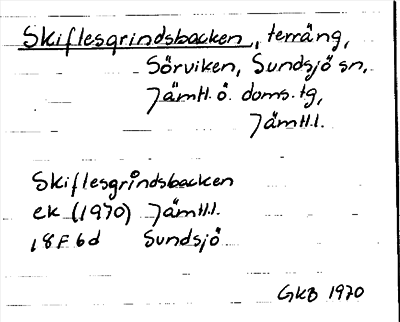 Skiflesgrindsbacken, terräng,
Sörviken, Sundsjö sn,
Jämtl. ö. doms. tg,
Jämtl.l.
Skiflesgrindsbacken
ek (1970) Jämtl.l.
18F6d Sundsjö
GKB 1970